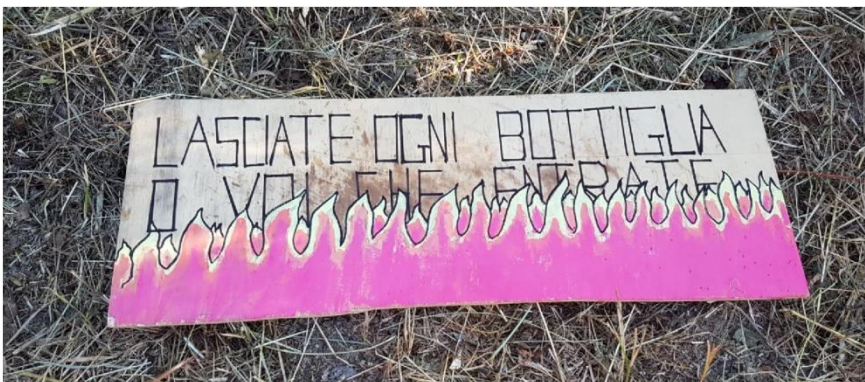 LASCIATE OGNI BOTTIGLIA
O VOI CHE ENTRATE